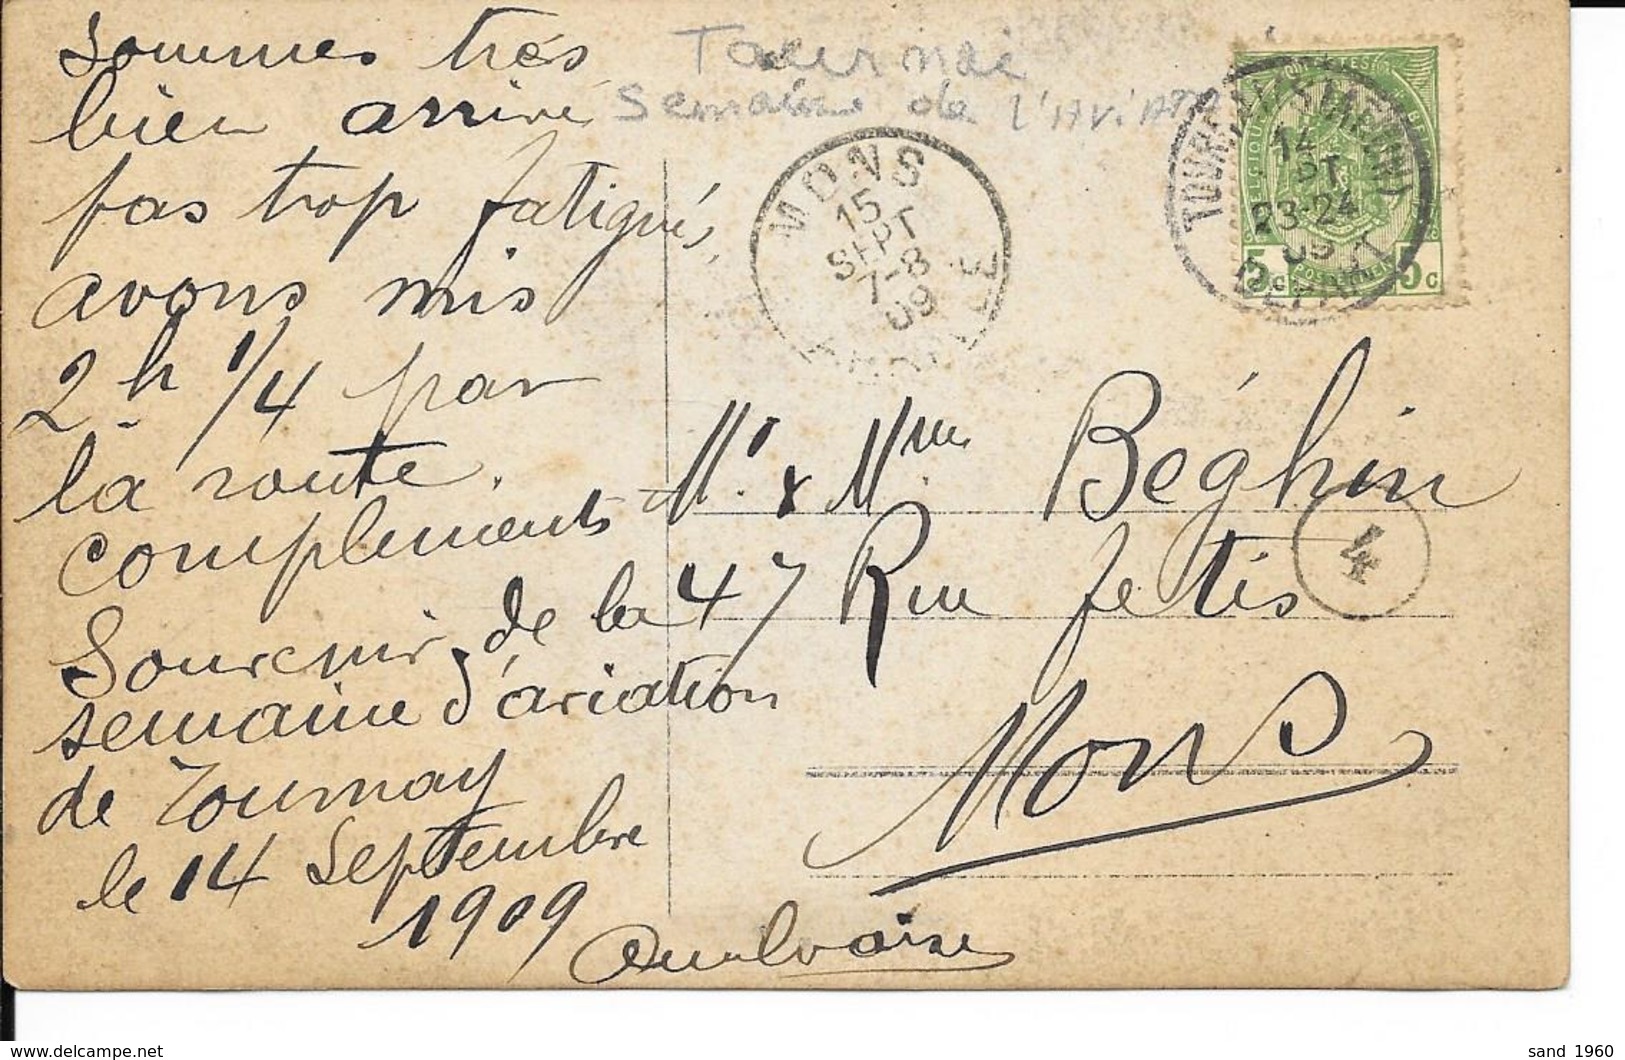 Sommes très
bien arrivé
pas trop fatigués,
avons mis
2 h 1/4 par
la route.
compliments
Souvenir de la
semaine d'aviation
de Tournay
le 14 Septembre
1909
Tournai
Semaine de l'AViAT
MONS
15
SEPT
7-8
09
14
23-24
09
DEPART
5c 5c
Mr & Mme Béghin
47 Rue Fetis
Mons
4
delcampe.net
sand_1960